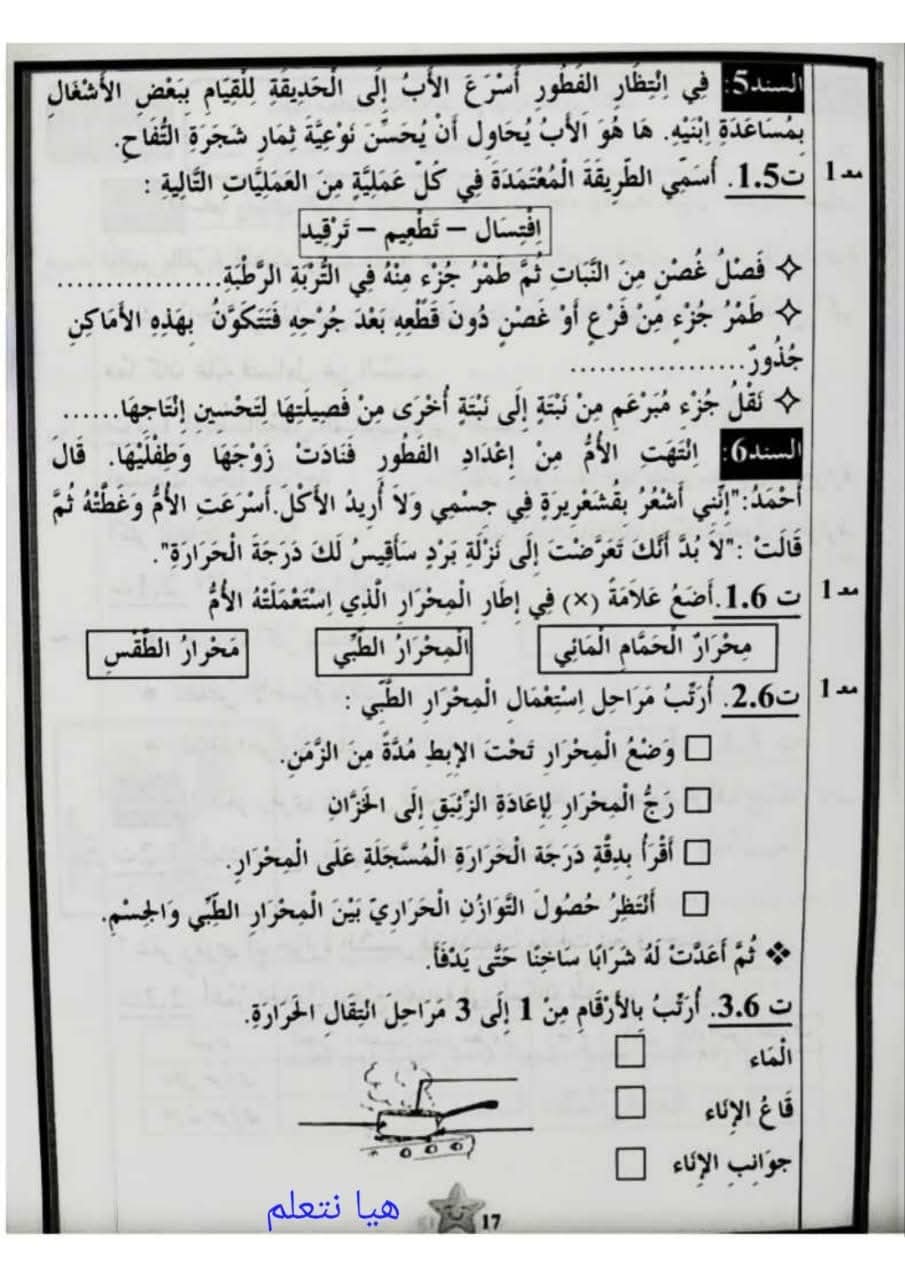 السند5: فِي اِنْتِظَارِ الفَطُورِ أَسْرَعَ الأَبُ إِلَى الْحَدِيقَةِ لِلْقِيَامِ بِبَعْضِ الأَشْغَالِ
بِمُسَاعَدَةِ اِبْنَيْهِ. هَا هُوَ الأَبُ يُحَاوِلُ أَنْ يُحَسِّنَ نَوْعِيَّةَ ثِمَارِ شَجَرَةِ التُّفَاحِ.
مع 1 ت1.5. أُسَمِّي الطَّرِيقَةَ الْمُعْتَمَدَةَ فِي كُلِّ عَمَلِيَّةٍ مِنَ العَمَلِيَّاتِ التَّالِيَةِ :
اِفْتِسَال – تَطْعِيم – تَرْقِيد
✧ فَصْلُ غُصْنٍ مِنَ النَّبَاتِ ثُمَّ طَمْرُ جُزْءٍ مِنْهُ فِي التُّرْبَةِ الرَّطْبَةِ.................
✧ طَمْرُ جُزْءٍ مِنْ فَرْعٍ أَوْ غُصْنٍ دُونَ قَطْعِهِ بَعْدَ جُرْحِهِ فَتَتَكَوَّنُ بِهَذِهِ الأَمَاكِنِ
جُذُورٌ..................
✧ نَقْلُ جُزْءٍ مُبَرْعَمٍ مِنْ نَبْتَةٍ إِلَى نَبْتَةٍ أُخْرَى مِنْ فَصِيلَتِهَا لِتَحْسِينِ إِنْتَاجِهَا......
السند6: اِنْتَهَتِ الأُمُّ مِنْ إِعْدَادِ الفَطُورِ فَنَادَتْ زَوْجَهَا وَطِفْلَيْهَا. قَالَ
أَحْمَدُ:"إِنَّنِي أَشْعُرُ بِقَشْعَرِيرَةٍ فِي جِسْمِي وَلاَ أُرِيدُ الأَكْلَ.أَسْرَعَتِ الأُمُّ وَغَطَّتْهُ ثُمَّ
قَالَتْ :"لاَ بُدَّ أَنَّكَ تَعَرَّضْتَ إِلَى نَزْلَةِ بَرْدٍ سَأَقِيسُ لَكَ دَرَجَةَ الْحَرَارَةِ".
مع 1 ت 1.6.أَضَعُ عَلاَمَةَ (×) فِي إِطَارِ الْمِحْرَارِ الَّذِي اِسْتَعْمَلَتْهُ الأُمُّ
مِحْرَارُ الْحَمَّامِ الْمَائِي الْمِحْرَارُ الطِّبِّي مَحْرَارُ الطَّقْسِ
مع 1 ت2.6. أُرَتِّبُ مَرَاحِلَ اِسْتِعْمَالِ الْمِحْرَارِ الطِّبِّي :
وَضْعُ الْمِحْرَارِ تَحْتَ الإِبِطِ مُدَّةً مِنَ الزَّمَنِ.
رَجُّ الْمِحْرَارِ لِإِعَادَةِ الزِّئْبَقِ إِلَى الخَزَّانِ
أَقْرَأُ بِدِقَّةٍ دَرَجَةَ الْحَرَارَةِ الْمُسَّجَلَةِ عَلَى الْمِحْرَارِ.
أَنْتَظِرُ حُصُولَ التَّوَازُنِ الْحَرَارِيِّ بَيْنَ الْمِحْرَارِ الطِّبِّي وَالجِسْمِ.
❖ ثُمَّ أَعَدَّتْ لَهُ شَرَابًا سَاخِنًا حَتَّى يَدْفَأَ.
ت 3.6. أُرَتِّبُ بِالأَرْقَامِ مِنْ 1 إِلَى 3 مَرَاحِلَ انْتِقَالِ الحَرَارَةِ.
الْمَاء
قَاعُ الإِنَاء
جوَانِبِ الإِنَاء
17
هيا نتعلم